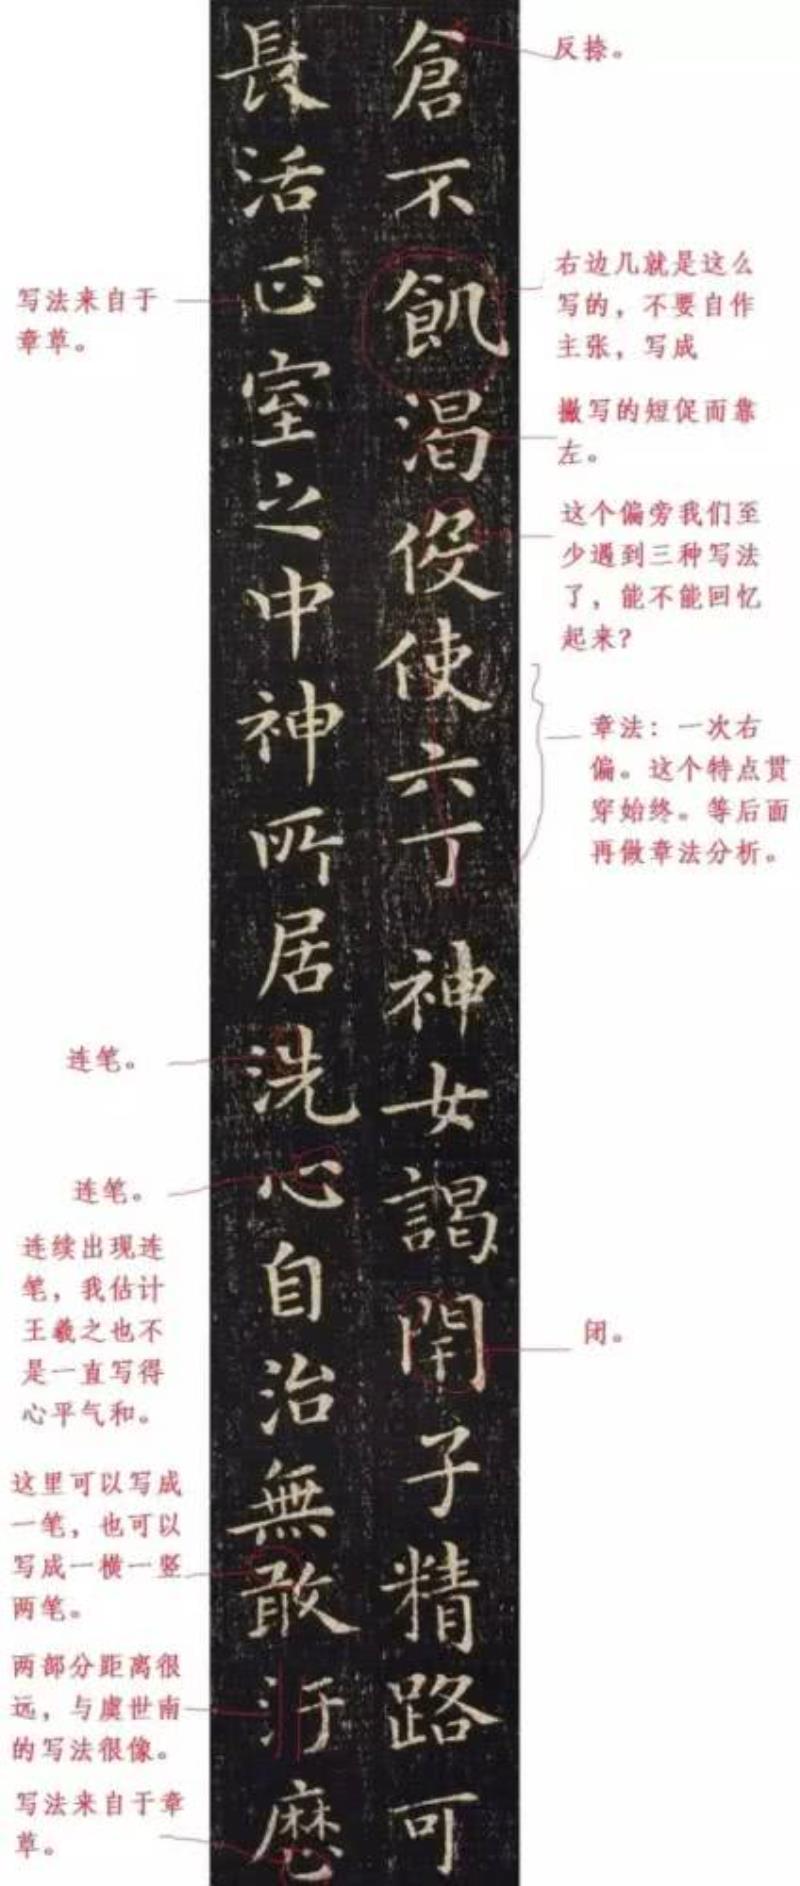 倉不飢渴伇使六丁神女謁閇子精路可
長活正室之中神所居洗心自治無敢汙歷
反捺。
右边几就是这么
写的，不要自作
主张，写成
撇写的短促而靠
左。
这个偏旁我们至
少遇到三种写法
了，能不能回忆
起来？
章法：一次右
偏。这个特点贯
穿始终。等后面
再做章法分析。
闭。
写法来自于
章草。
连笔。
连笔。
连续出现连
笔，我估计
王羲之也不
是一直写得
心平气和。
这里可以写成
一笔，也可以
写成一横一竖
两笔。
两部分距离很
远，与虞世南
的写法很像。
写法来自于章
草。